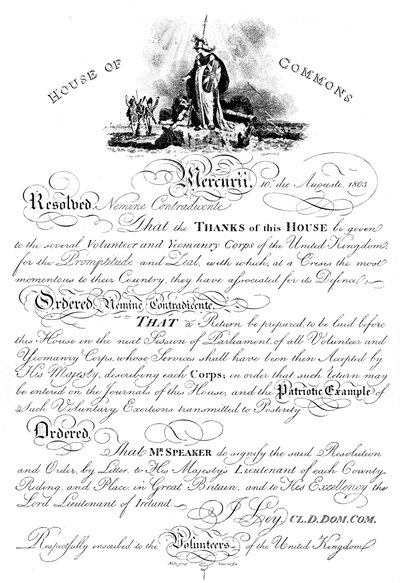 HOUSE OF COMMONS
Mercurii, 10.° die Augusti, 1803
Resolved, Nemine Contradicente,
That the THANKS of this HOUSE be given
to the several Volunteer and Yeomanry Corps of the United Kingdom,
for the Promptitude and Zeal, with which, at a Crisis the most
momentous to their Country, they have associated for its Defence.
Ordered, Nemine Contradicente,
THAT a Return be prepared, to be laid before
this House in the next Session of Parliament, of all Volunteer and
Yeomanry Corps, whose Services shall have been then Accepted by
His Majesty, describing each Corps; in order that such Return may
be entered on the Journals of this House, and the Patriotic Example of
Such Voluntary Exertions transmitted to Posterity
Ordered,
That Mr. SPEAKER do signify the said Resolution
and Order, by Letter, to His Majesty's Lieutenant of each County
Riding, and Place, in Great Britain, and to His Excellency the
Lord Lieutenant of Ireland.
J. Ley, CL. D. DOM. COM.
Respectfully inscribed to the Volunteers of the United Kingdom